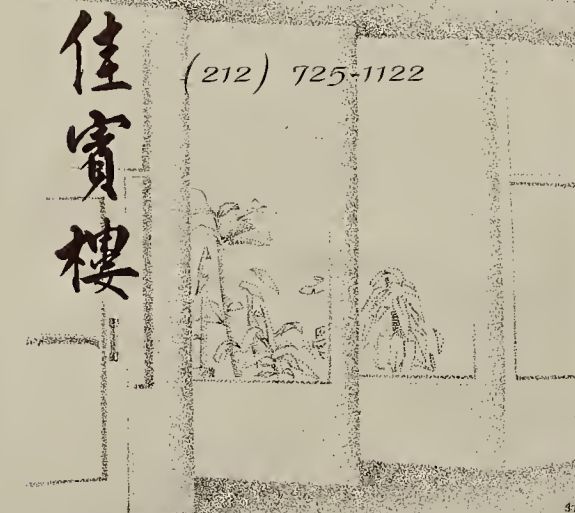 佳賓樓
(212) 725-1122